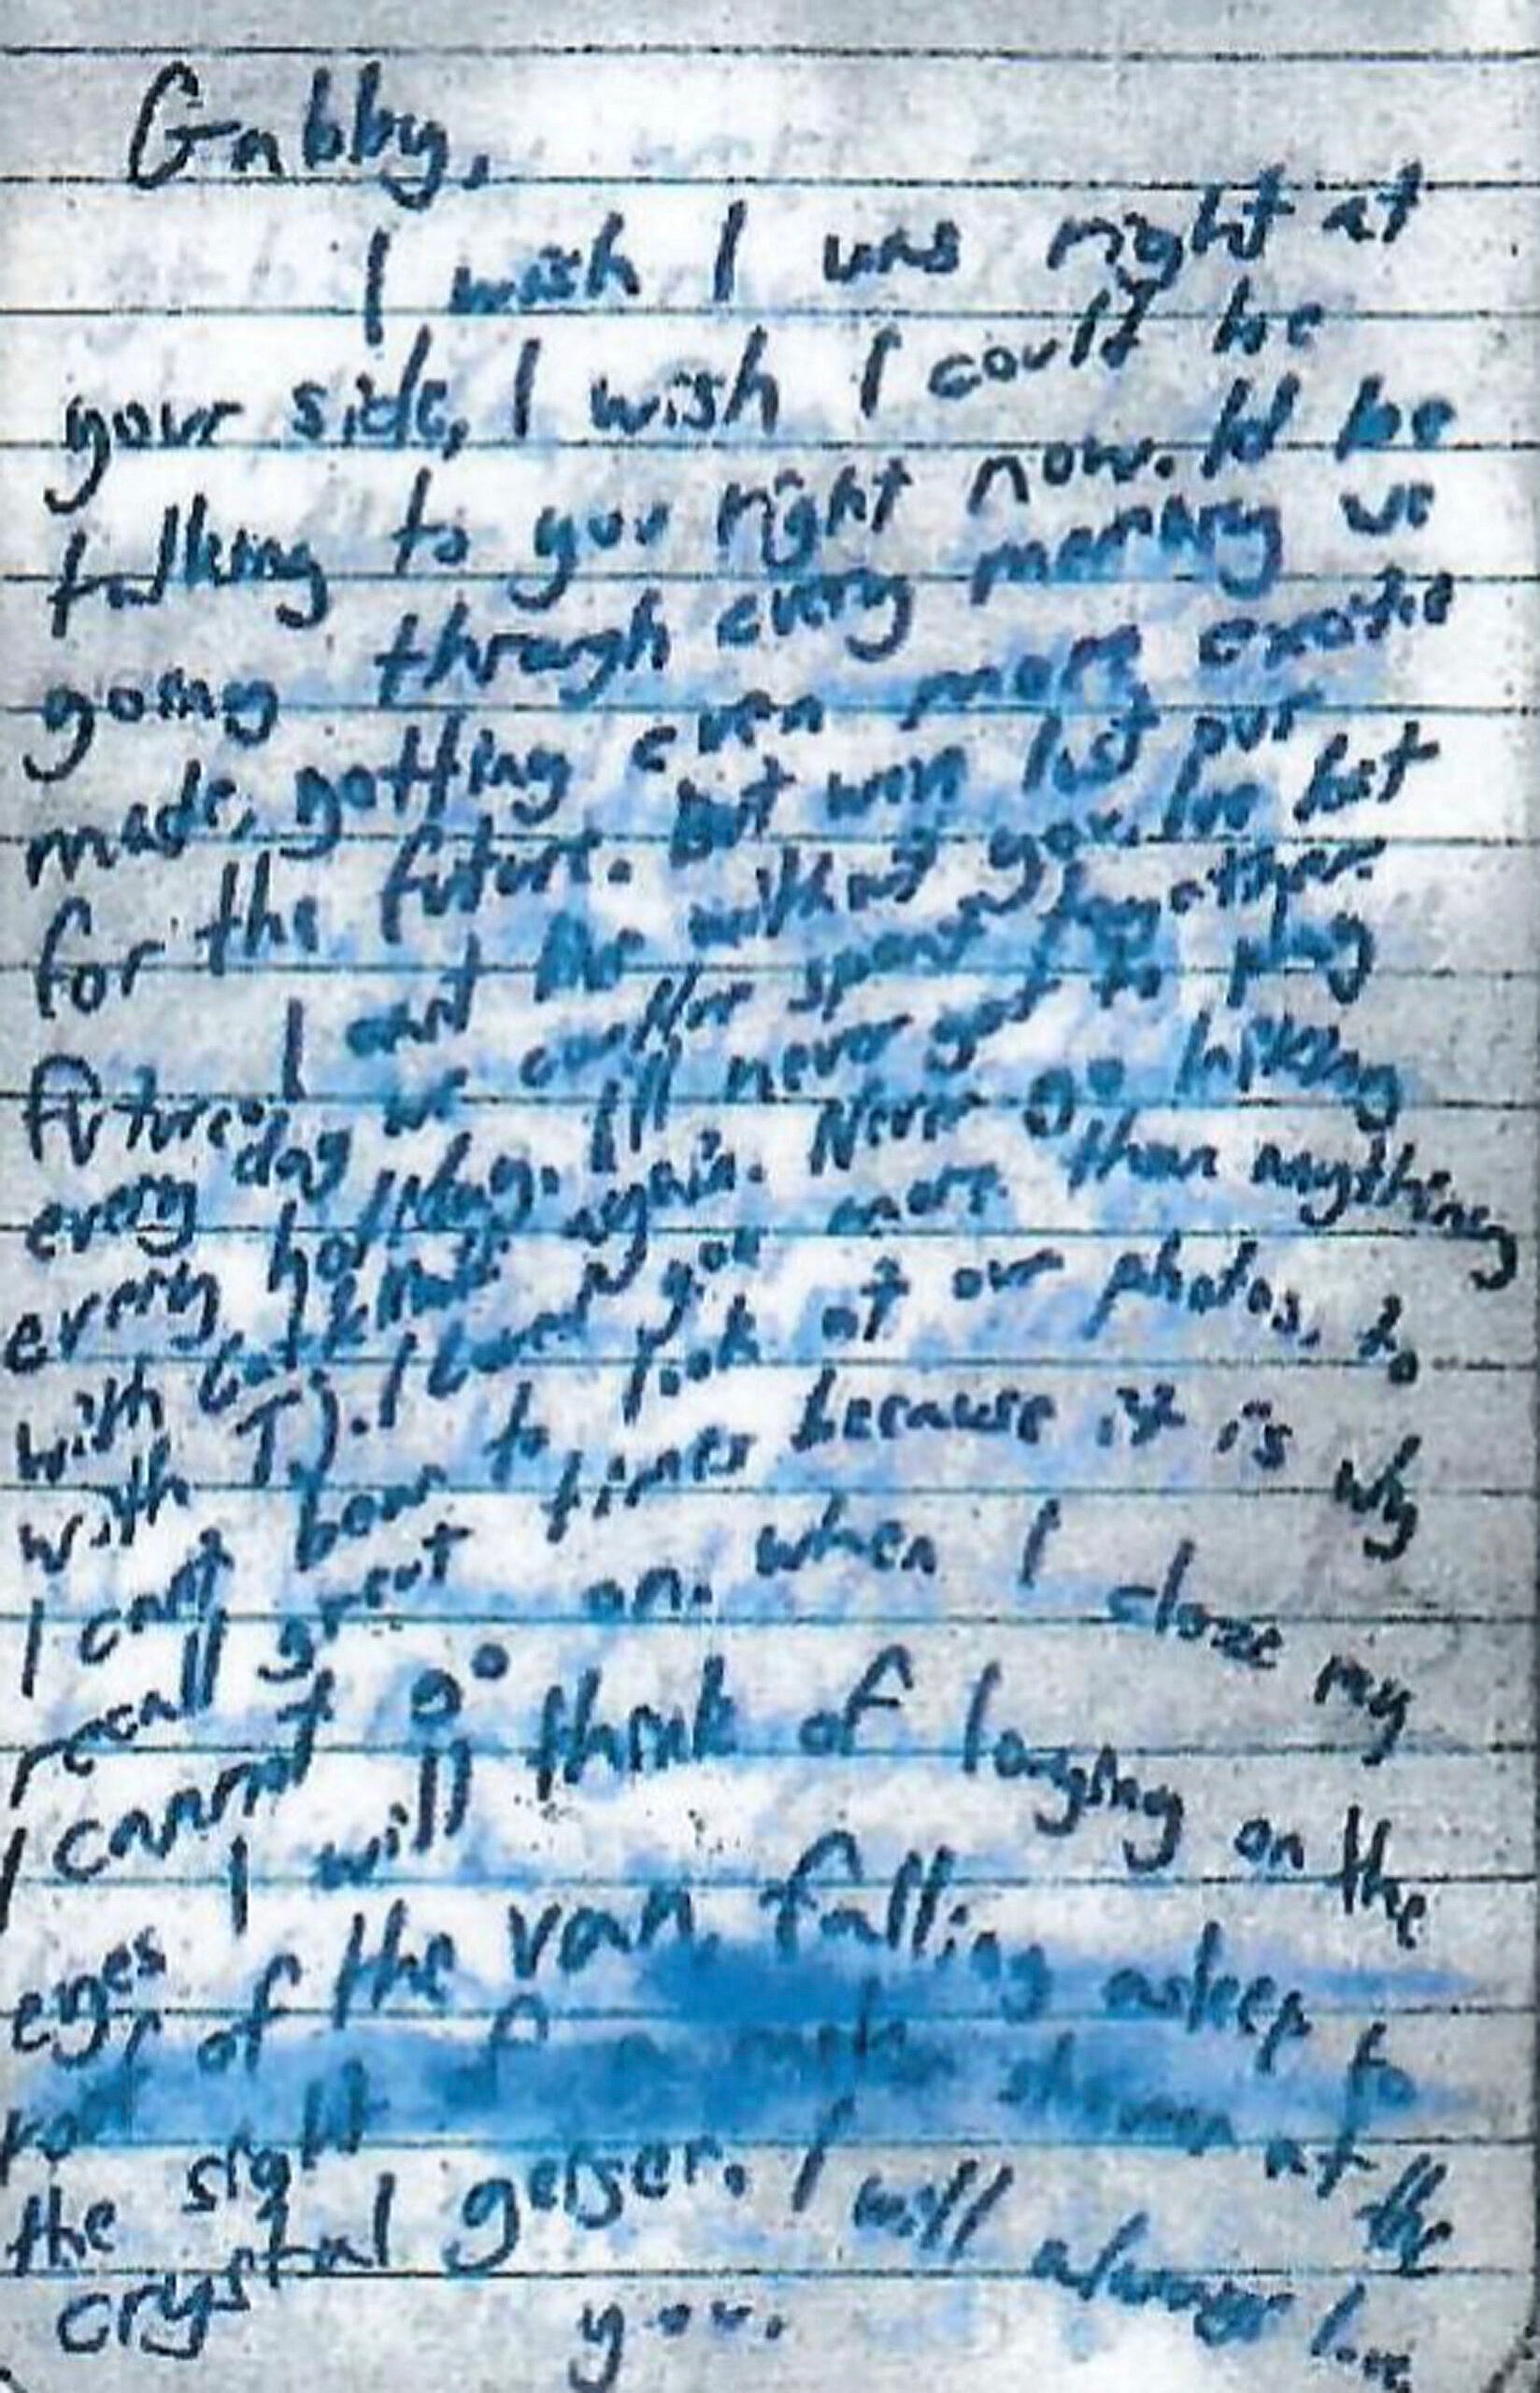 Gabby,
I wish I was right at
your side, I wish I could be
talking to you right now. Id be
going through every memory we
made, getting even more excited
for the future. But we lost our
future. I cant live without you. Ive lost
every day we could spent together.
every holiday. I'll never get to play
with again. Never go hiking
with TJ. I loved you more than anything
I cant bear to look at our photos, to
recall great times because it is why
I cannot go on. when I close my
eyes I will think of laughing on the
roof of the van, falling asleep to
the sight of at the
crystal geiser. I will always love
you.